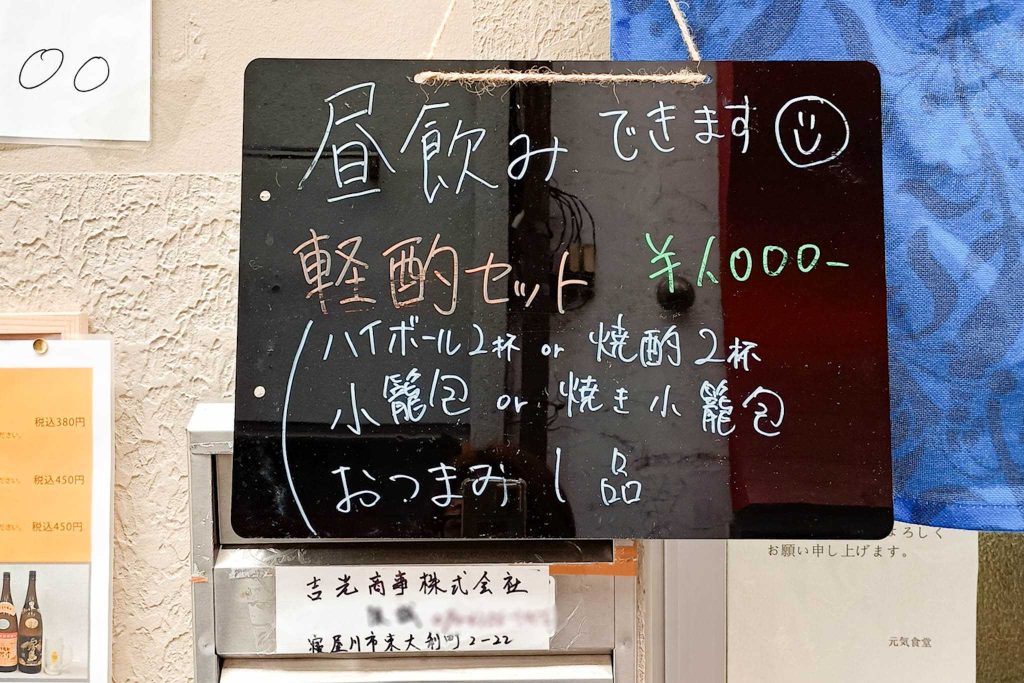 昼飲みできます
軽酌セット ¥1000-
ハイボール2杯 or 焼酌2杯
小籠包 or 焼き小籠包
おつまみ 1品
税込380円
ださい。
税込450円
ださい。 税込450円
よろしく
お願い申し上げます。
元気食堂
吉光商事株式会社
寝屋川市末大利町2-22